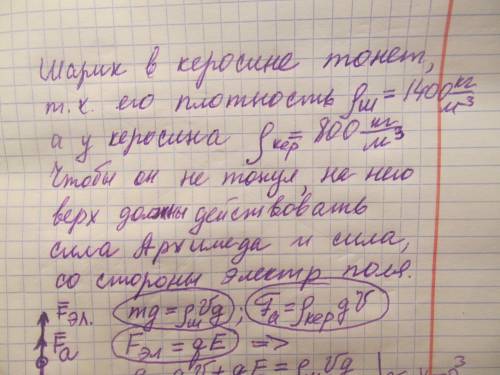 Шарик в керосине тонет,
т.к. его плотность ρш = 1400 кг/м³
а у керосина ρкер = 800 кг/м³
Чтобы он не тонул, на него
верх должны действовать
сила Архимеда и сила,
со стороны электр поля.
F̅эл. mg = ρшVg ; Fа = ρкер gV
F̅а Fэл = qE =>
gV + qE = ρшVg